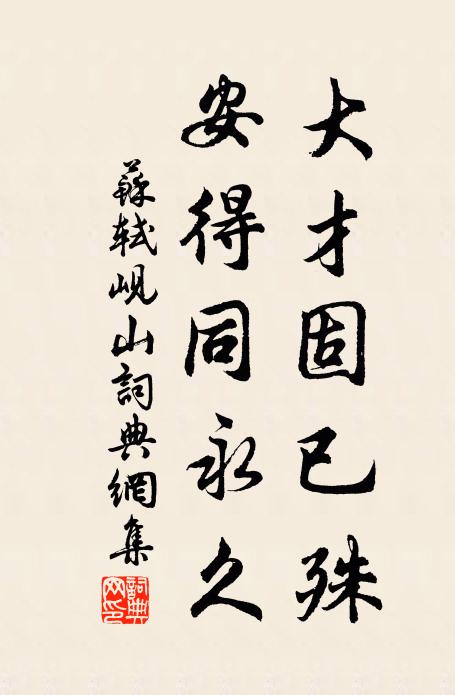 大才固已殊
安得同永久
蘇軾峴山詞典網集
詞典網印